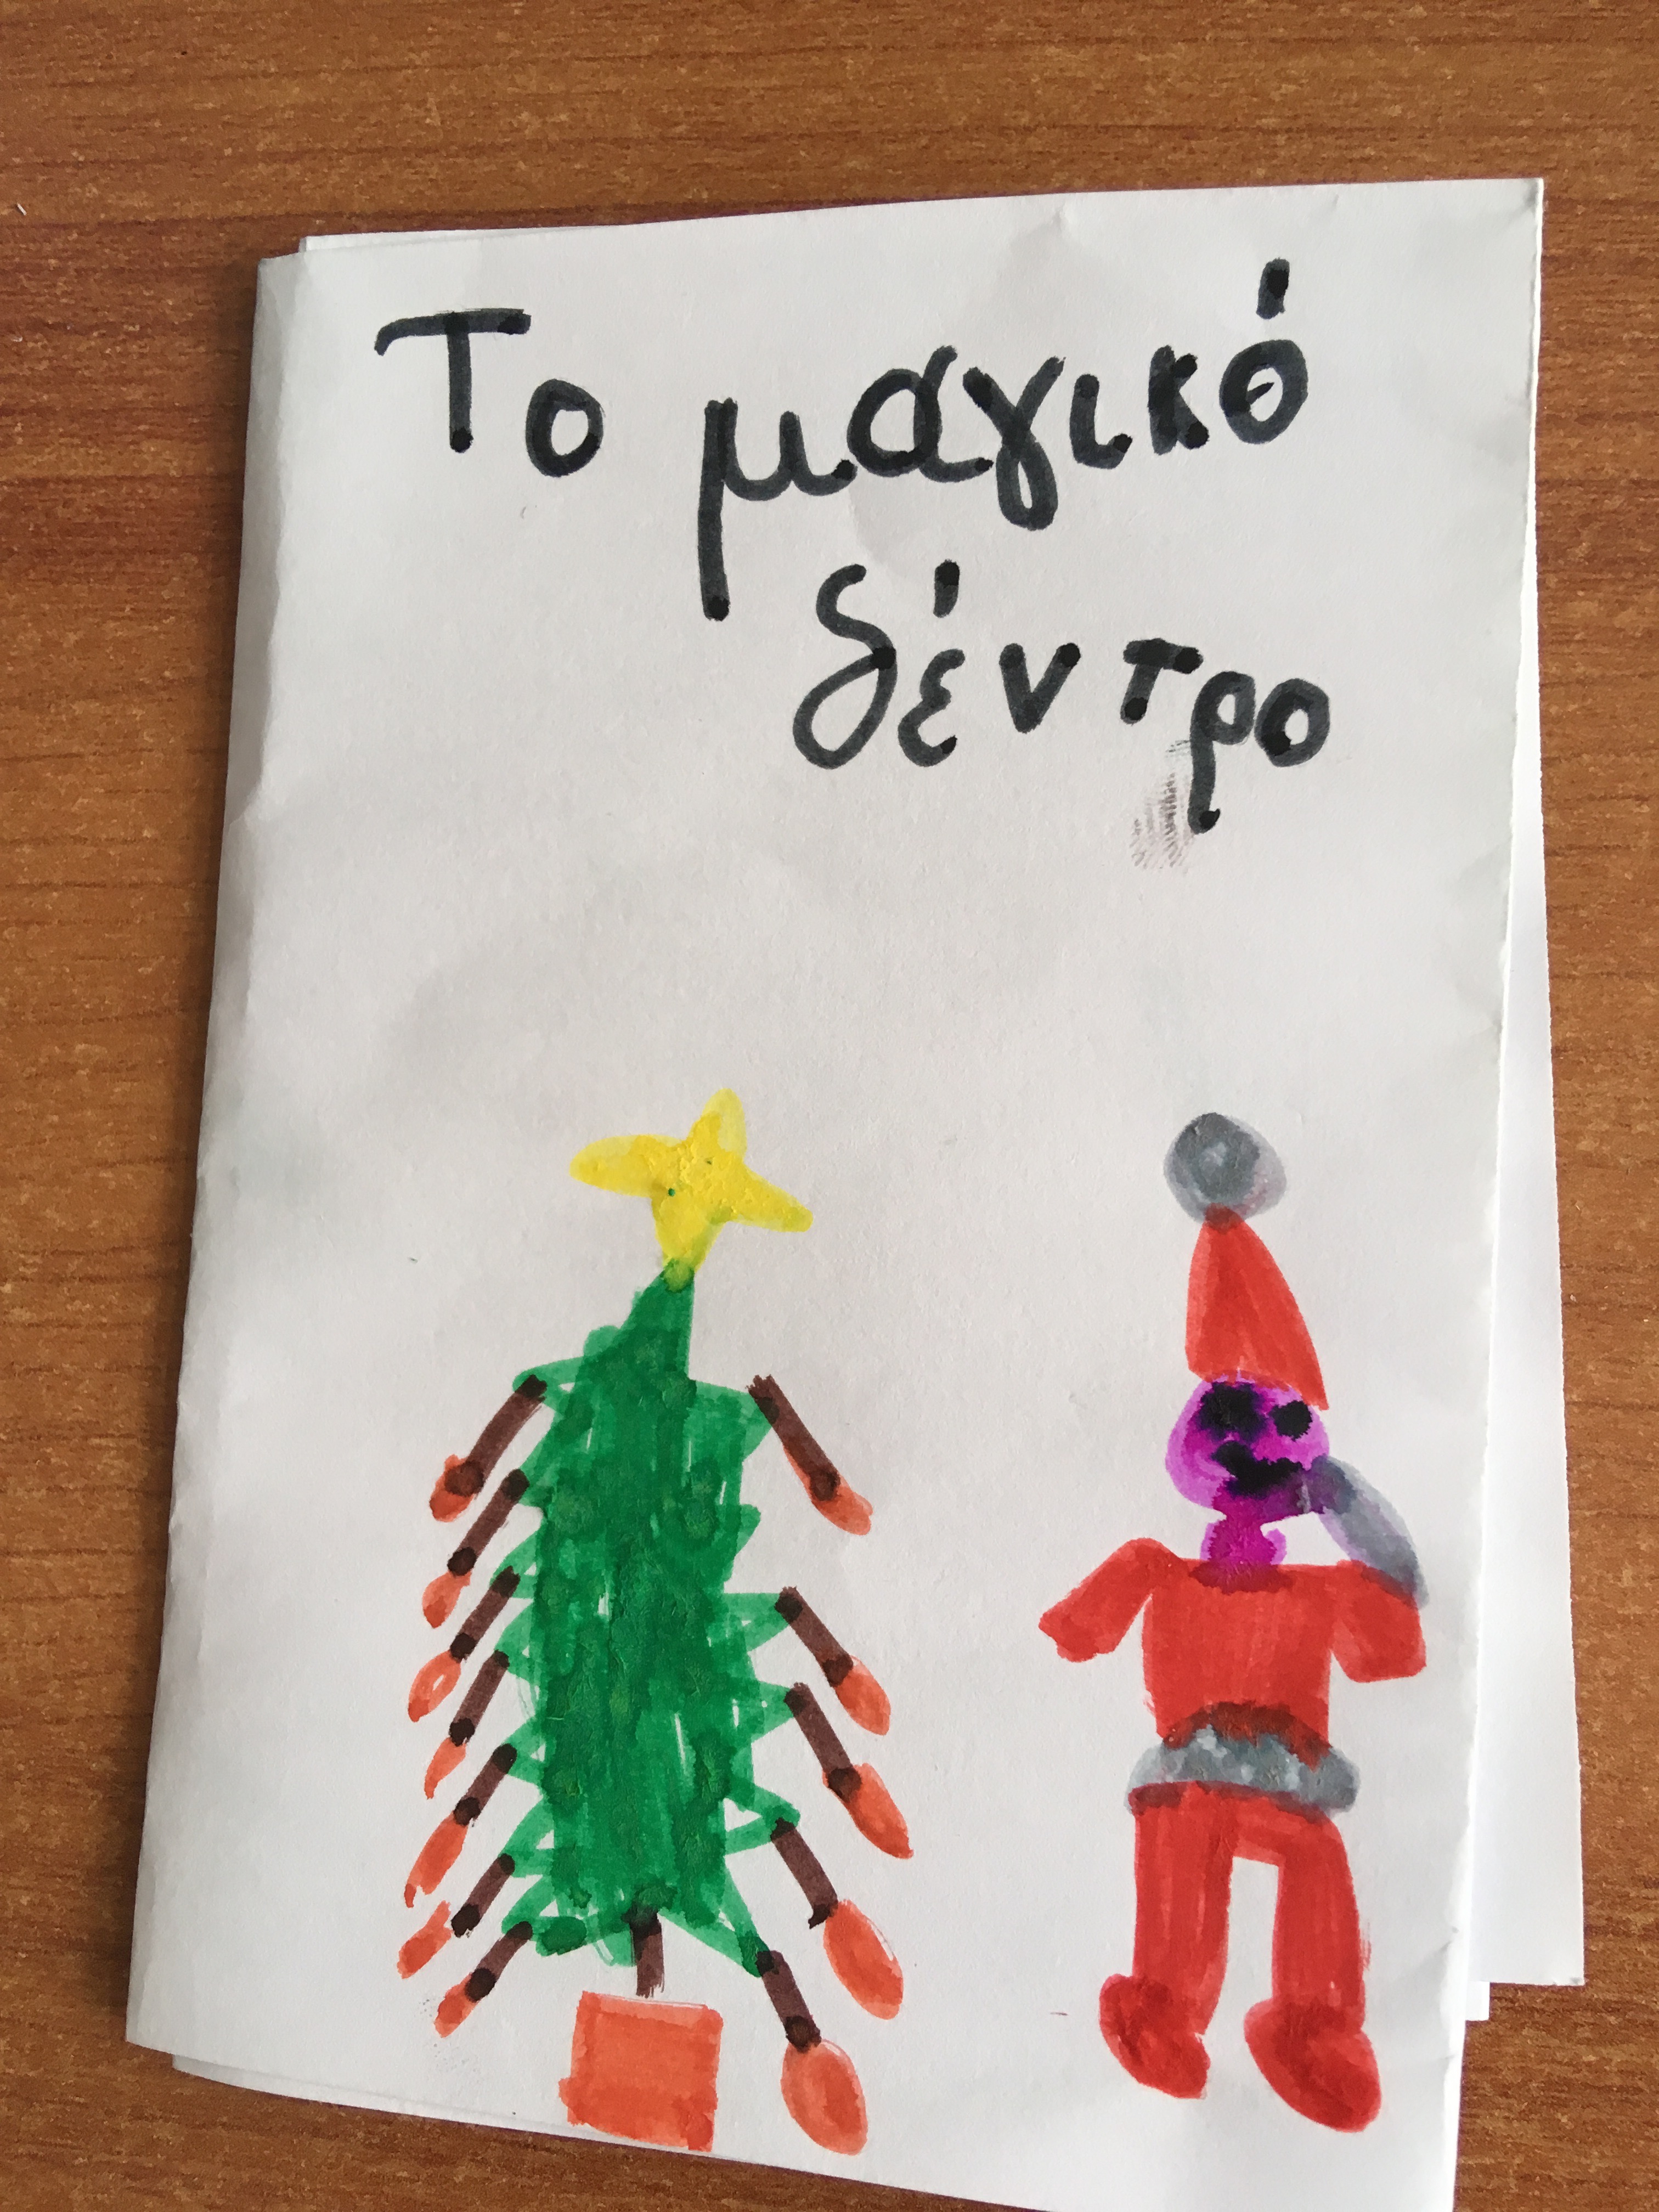 Το μαγικό
δέντρο